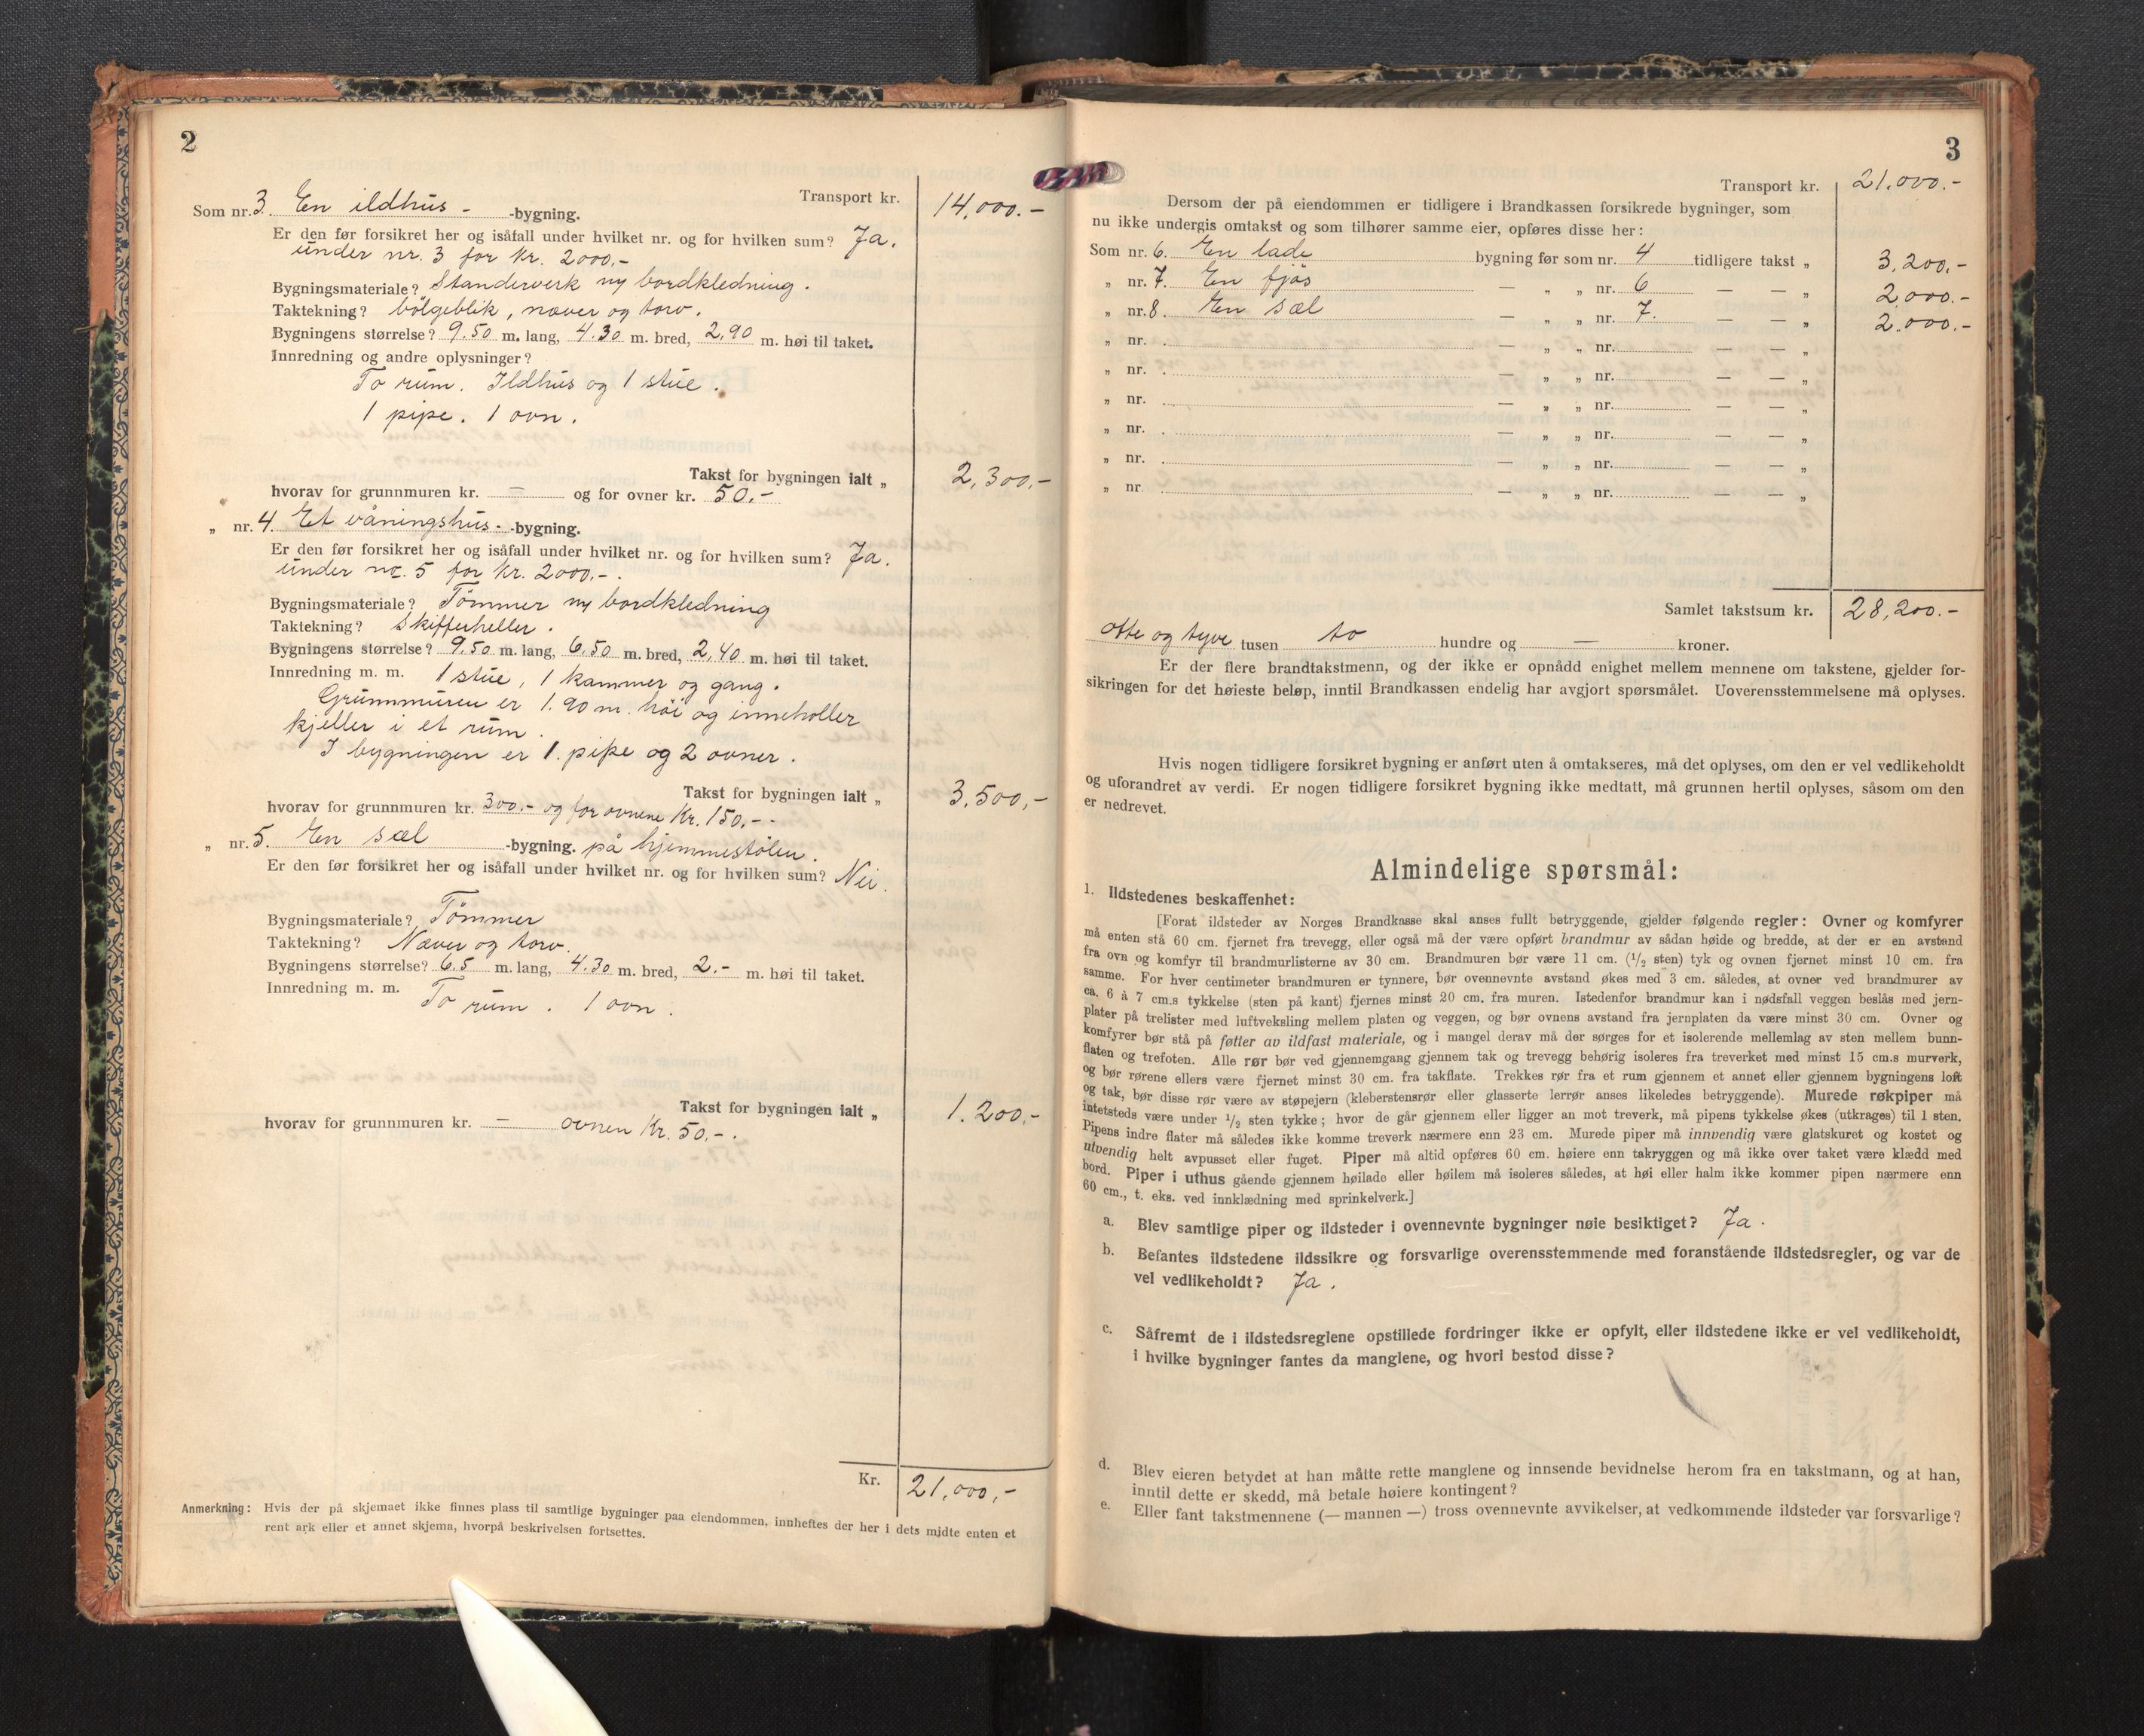 2
Transport kr. 14,000.-
Som nr. 3. En ildhus - -bygning.
Er den før forsikret her og isåfall under hvilket nr. og for hvilken sum? Ja.
under nr. 3 for kr. 2000,-
Bygningsmateriale? Standerverk ny bordkledning.
Taktekning? bølgeblik, næver og torv.
Bygningens størrelse? 9.50 m. lang, 4.30 m. bred, 2,90 m. høi til taket.
Innredning og andre oplysninger?
To rum. Ildhus og 1 stue.
1 pipe. 1 ovn.
Takst for bygningen ialt „ 2,300,-
hvorav for grunnmuren kr. — og for ovner kr. 50.-
„ nr. 4. Et våningshus- -bygning.
Er den før forsikret her og isåfall under hvilket nr. og for hvilken sum? Ja.
under nr. 5 for kr. 2000,-.
Bygningsmateriale? Tømmer ny bordkledning
Taktekning? Skifferheller.
Bygningens størrelse? 9.50 m. lang, 6.50 m. bred, 2,40 m. høi til taket.
Innredning m. m. 1 stue, 1 kammer og gang.
Grunnmuren er 1.90 m. høi og inneholler
kjeller i et rum.
I bygningen er 1. pipe og 2 ovner.
Takst for bygningen ialt „ 3,500,-
hvorav for grunnmuren kr. 300.- og for ovnene Kr. 150,-.
„ nr. 5. En sæl -bygning. på hjemmestølen.
Er den før forsikret her og isåfall under hvilket nr. og for hvilken sum? Nei.
Bygningsmateriale? Tømmer
Taktekning? Næver og torv.
Bygningens størrelse? 6.5 m. lang, 4.30 m. bred, 2.- m. høi til taket.
Innredning m. m. To rum. 1 ovn.
Takst for bygningen ialt „ 1.200,-
hvorav for grunnmuren kr. — ovnen Kr. 50,-.
Kr. 21,000,-
Anmerkning: Hvis der på skjemaet ikke finnes plass til samtlige bygninger paa eiendommen, innheftes der her i dets midte enten et
rent ark eller et annet skjema, hvorpå beskrivelsen fortsettes.
3
Transport kr. 21.000.-
Dersom der på eiendommen er tidligere i Brandkassen forsikrede bygninger, som
nu ikke undergis omtakst og som tilhører samme eier, opføres disse her:
Som nr. 6. En lade bygning før som nr. 4 tidligere takst „ 3,200,-
„ nr. 7. En fjøs — „ „ nr. 6 — — „ 2,000.-
„ nr. 8. En sæl — „ „ nr. 7. — — „ 2.000.-
„ nr. . — „ „ nr. — — „
„ nr. . — „ „ nr. — — „
„ nr. . — „ „ nr. — — „
„ nr. . — „ „ nr. — — „
„ nr. . — „ „ nr. — — „
„ nr. — „ „ nr. — — „
Samlet takstsum kr. 28,200.-
otte og tyve tusen to hundre og — kroner.
Er der flere brandtakstmenn, og der ikke er opnådd enighet mellem mennene om takstene, gjelder for-
sikringen for det høieste beløp, inntil Brandkassen endelig har avgjort spørsmålet. Uoverensstemmelsene må oplyses.
Hvis nogen tidligere forsikret bygning er anført uten å omtakseres, må det oplyses, om den er vel vedlikeholdt
og uforandret av verdi. Er nogen tidligere forsikret bygning ikke medtatt, må grunnen hertil oplyses, såsom om den
er nedrevet.
Almindelige spørsmål:
1. Ildstedenes beskaffenhet:
[Forat ildsteder av Norges Brandkasse skal anses fullt betryggende, gjelder følgende regler: Ovner og komfyrer
må enten stå 60 cm. fjernet fra trevegg, eller også må der være opført brandmur av sådan høide og bredde, at der er en avstand
fra ovn og komfyr til brandmurlisterne av 30 cm. Brandmuren bør være 11 cm. (1/2 sten) tyk og ovnen fjernet minst 10 cm. fra
samme. For hver centimeter brandmuren er tynnere, bør ovennevnte avstand økes med 3 cm. således, at ovner ved brandmurer av
ca. 6 à 7 cm.s tykkelse (sten på kant) fjernes minst 20 cm. fra muren. Istedenfor brandmur kan i nødsfall veggen beslås med jern-
plater på trelister med luftveksling mellem platen og veggen, og bør ovnens avstand fra jernplaten da være minst 30 cm. Ovner og
komfyrer bør stå på føtter av ildfast materiale, og i mangel derav må der sørges for et isolerende mellemlag av sten mellem bunn-
flaten og trefoten. Alle rør bør ved gjennemgang gjennem tak og trevegg behørig isoleres fra treverket med minst 15 cm.s murverk,
og bør rørene ellers være fjernet minst 30 cm. fra takflate. Trekkes rør fra et rum gjennem et annet eller gjennem bygningens loft
og tak, bør disse rør være av støpejern (kleberstensrør eller glasserte lerrør anses likeledes betryggende). Murede røkpiper må
intetsteds være under 1/2 sten tykke; hvor de går gjennem eller ligger an mot treverk, må pipens tykkelse økes (utkrages) til 1 sten.
Pipens indre flater må således ikke komme treverk nærmere enn 23 cm. Murede piper må innvendig være glatskuret og kostet og
utvendig helt avpusset eller fuget. Piper må altid opføres 60 cm. høiere enn takryggen og må ikke over taket være klædd med
bord. Piper i uthus gående gjennem høilade eller høilem må isoleres således, at høi eller halm ikke kommer pipen nærmere enn
60 cm., t. eks. ved innklædning med sprinkelverk.]
a. Blev samtlige piper og ildsteder i ovennevnte bygninger nøie besiktiget? Ja.
b. Befantes ildstedene ildssikre og forsvarlige overensstemmende med foranstående ildstedsregler, og var de
vel vedlikeholdt? Ja.
c. Såfremt de i ildstedsreglene opstillede fordringer ikke er opfylt, eller ildstedene ikke er vel vedlikeholdt,
i hvilke bygninger fantes da manglene, og hvori bestod disse?
d. Blev eieren betydet at han måtte rette manglene og innsende bevidnelse herom fra en takstmann, og at han,
inntil dette er skedd, må betale høiere kontingent?
e. Eller fant takstmennene (— mannen —) tross ovennevnte avvikelser, at vedkommende ildsteder var forsvarlige?